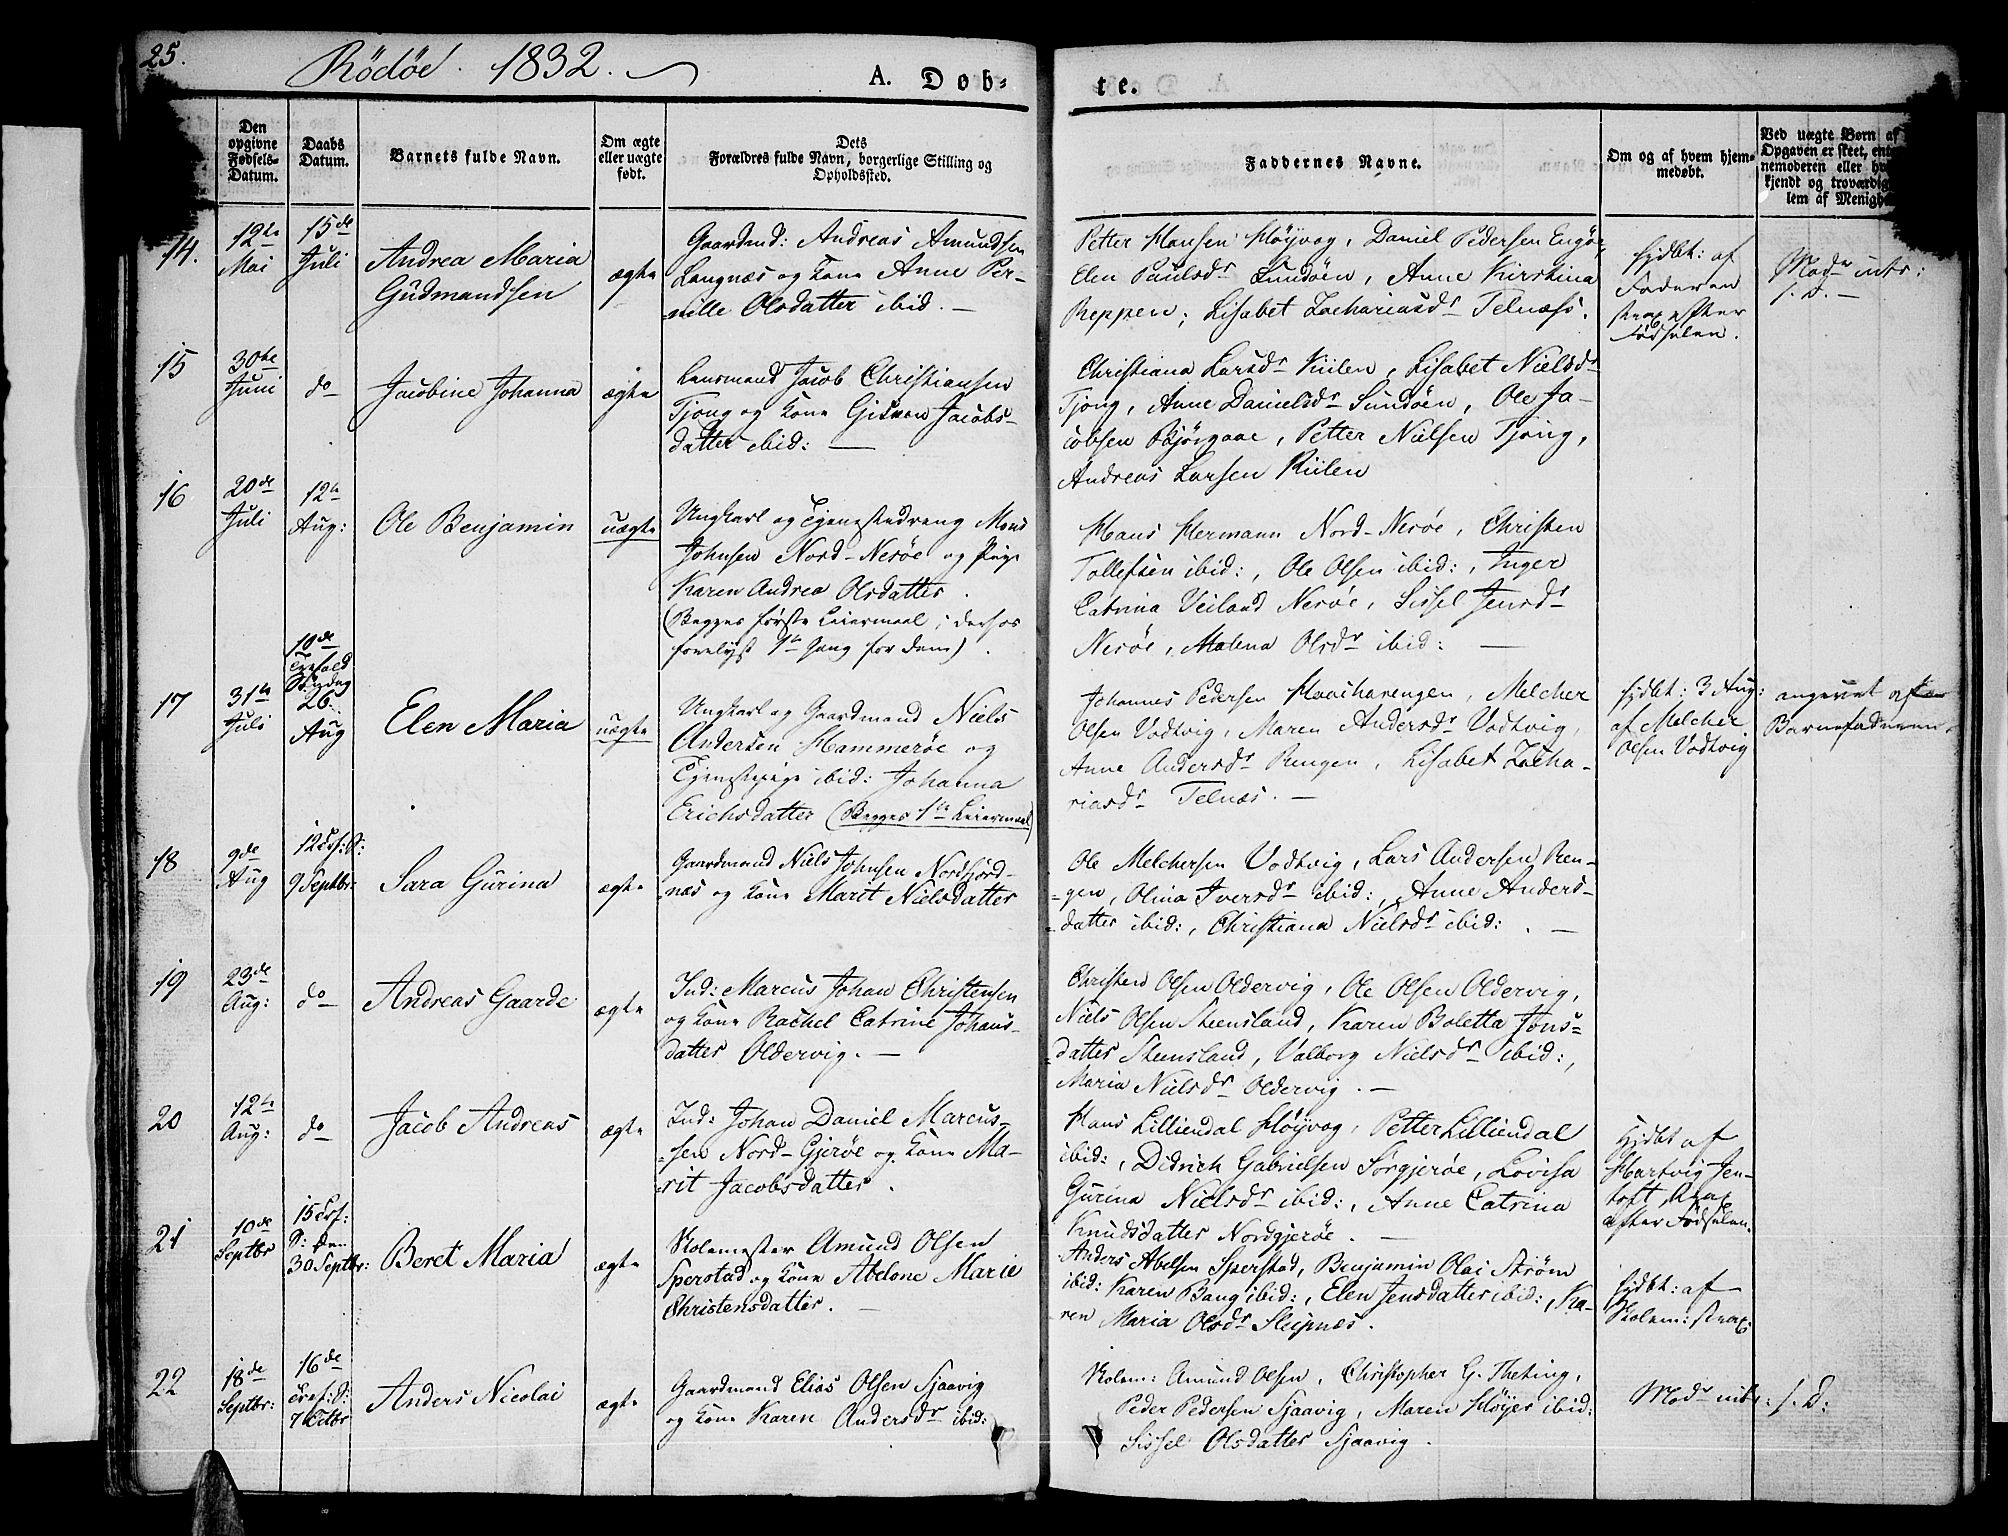 25.
Rödöe. 1832.
A. Døb-
te.
Den opgivne Fødsels-Datum.
Daabs Datum.
Barnets fulde Navn.
Om ægte eller uægte født.
Dets Forældres fulde Navn, borgerlige Stilling og Opholdssted.
Faddernes Navne.
Om og af hvem hjem-
medøbt.
Ved uægte Børn af
Opgaven er skeet, ent
nemoderen eller hv
kjendt og troværdig
lem af Menighe
14.
12te Mai
15de Juli
Andrea Maria
Gudmandsen
ægte
Gaardmd: Andreas Amundsen
Langnæs og Kone Anne Per-
nille Olsdatter ibid. —
Petter Hansen Høyvog, Daniel Pedersen Engör,
Elen Paulsdr Sundöen, Anne Kirstina
Reppen, Lisabet Zachariasdr Telnæss.
hjdbt: af
Faderen
strax efter
Födselen.
Modr intr:
s. D. —
15
30te Juni
do
Jacobine Johanna
ægte
Lensmand Jacob Christiansen
Tjong og Kone Gisken Jacobs-
datter ibid: —
Christiana Larsdr Kiilen, Lisabet Nielsdr
Tjong, Anne Danielsdr Sundöen, Ole Ja-
cobsen Bjørgaae, Petter Nielsen Tjong,
Andreas Larsen Kiilen
16
20de Juli
12te Aug:
Ole Benjamin
uægte
Ungkarl og Tjenestedreng Mons
Johnsen Nord-Nesöe og Pige
Karen Andrea Olsdatter.
(Begges første Leiermaal; derfor
forelyst 1te Gang for dem).
Hans Hermann Nord-Nesöe, Christen
Tollefsen ibid:, Ole Olsen ibid:, Inger
Catrina Veiland Nesöe, Sissel Jensdr
Nesöe, Malena Olsdr ibid: —
17
31te Juli
10de
Søndag
26
Aug
Elen Maria
uægte
Ungkarl og Gaardmand Niels
Andersen Hammeröe og
Tjenestepige ibid: Johanna
Erichsdatter (Begges 1te Leiermaal)
Johannes Pedersen, Melcher
Olsen Vodtvig, Maren Andersdr Vodtvig,
Anne Andersdr Rengen, Lisabet Zacha-
riasdr Telnæs. —
hjdbt: 3 Aug:
af Melcher
Olsen Vodtvig
angivet af
Barnefaderen.
18
9de Aug
12 Trf: S:
9 Septbr:
Sara Gurina
ægte
Gaardmand Niels Johnsen Nordfjord-
næs og Kone Marit Nielsdatter
Ole Melchersen Vodtvig, Lars Andersen Ren-
gen, Olina Iversdr ibid:, Anne Anders-
datter ibid:, Christiana Nielsdr ibid: . —
19
23de Aug:
do
Andreas Gaarde
ægte
Ind: Marcus Johan Christensen
og Kone Rachel Catrine Johans-
datter Oldervig. —
Christen Olsen Oldervig, Ole Olsen Oldervig,
Niels Olsen Steensland, Karen Boletta Jons-
datter Steensland, Valborg Nielsdr ibid:,
Maria Nielsdr Oldervig. —
20
12te Aug:
do
Jacob Andreas
ægte
Ind: Johan Daniel Marcus-
sen Nord-Gjeröe og Kone Ma-
rit Jacobsdatter.
Hans Lilliendal Høyvog, Petter Lilliendal
ibid:, Didrich Gabrielsen Sörgjeröe, Lovisa
Gurina Nielsdr ibid:, Anne Catrina
Knudsdatter Nordgjeröe. —
Hjdbt af
Hartvig Jen-
toft strax
efter Födselen.
21
10de Septbr
15 Trf:
S: den
30 Septbr:
Beret Maria
ægte
Skolemester Amund Olsen
Sperstad og Kone Abelone Marie
Christensdatter. —
Anders Abelsen Sperstad, Benjamin Olai Ström
ibid: Karen Bang ibid:, Elen Jensdatter ibid:, Ka-
ren Maria Olsdr Sleipnæs.
hjdbt: af
Skolem: strax.
22
18de Septbr:
16de
Tref: S:
7 Octbr
Anders Nicolai
ægte
Gaardmand Elias Olsen Sjaavig
og Kone Karen Andersdr ibid:
Skolem: Amund Olsen, Christopher G. Theting,
Peder Pedersen Sjaavig, Maren Høyer ibid:
Sissel Olsdatter Sjaavig.
Modr intr: s. D: